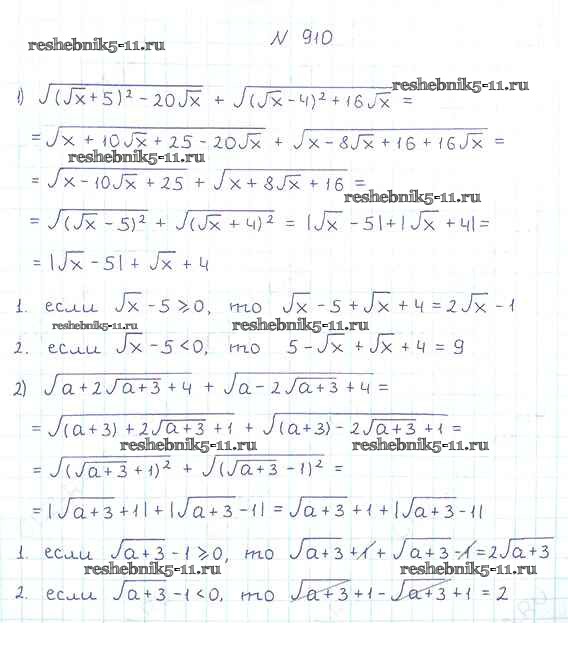 № 910
reshebnik5-11.ru
1) √((√x + 5)² − 20√x) + √((√x − 4)² + 16√x) =
reshebnik5-11.ru
= √(x + 10√x + 25 − 20√x) + √(x − 8√x + 16 + 16√x) =
reshebnik5-11.ru
= √(x − 10√x + 25) + √(x + 8√x + 16) =
reshebnik5-11.ru
= √((√x − 5)²) + √((√x + 4)²) = |√x − 5| + |√x + 4| =
= |√x − 5| + √x + 4
1. если √x − 5 ≥ 0, то √x − 5 + √x + 4 = 2√x − 1
reshebnik5-11.ru reshebnik5-11.ru
2. если √x − 5 < 0, то 5 − √x + √x + 4 = 9
2) √(a + 2√(a + 3) + 4) + √(a − 2√(a + 3) + 4) =
= √((a + 3) + 2√(a + 3) + 1) + √((a + 3) − 2√(a + 3) + 1) =
reshebnik5-11.ru reshebnik5-11.ru
= √((√(a + 3) + 1)²) + √((√(a + 3) − 1)²) =
= |√(a + 3) + 1| + |√(a + 3) − 1| = √(a + 3) + 1 + |√(a + 3) − 1|
1. если √(a + 3) − 1 ≥ 0, то √(a + 3) + 1 + √(a + 3) − 1 = 2√(a + 3)
reshebnik5-11.ru reshebnik5-11.ru
2. если √(a + 3) − 1 < 0, то √(a + 3) + 1 − √(a + 3) + 1 = 2